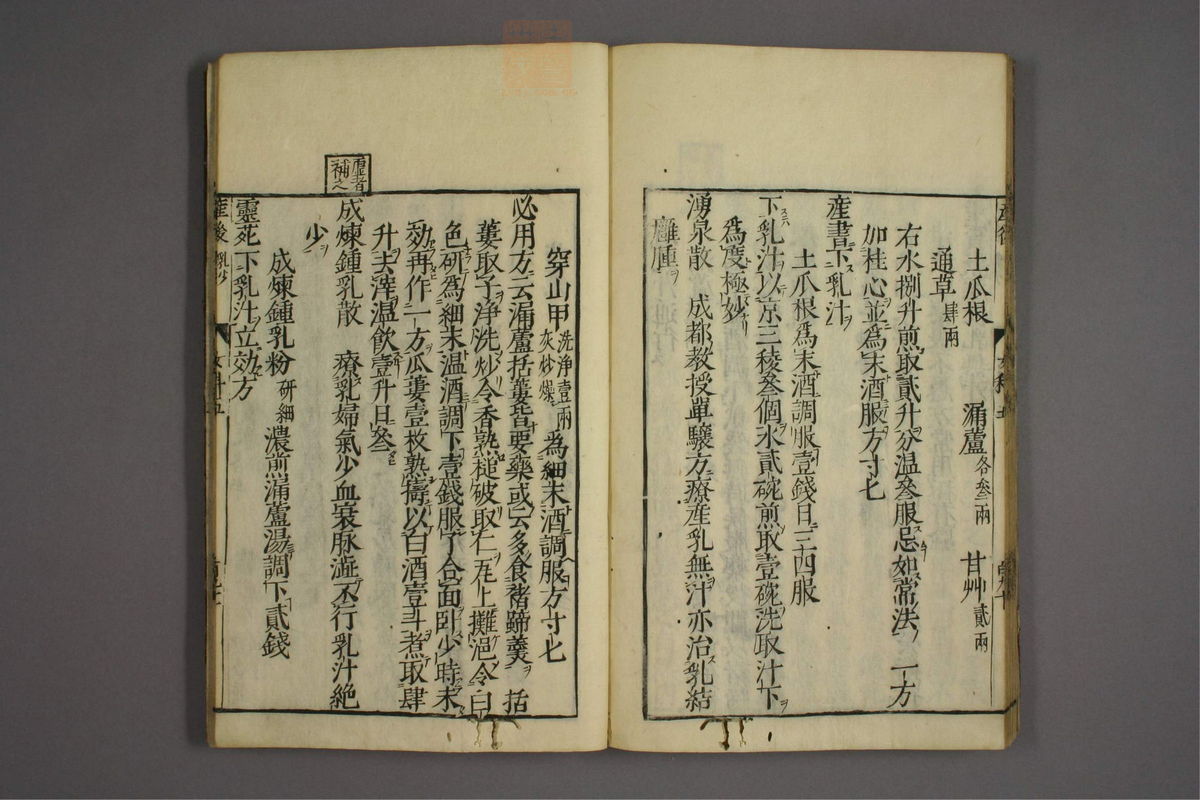 土瓜根　漏蘆各叁兩　甘艸貳兩
通草肆兩
右水捌升煎取貳升分温叁服忌如常法一方
加桂心並爲末酒服方寸匕
産書下乳汁
土瓜根爲末酒調服壹錢日三四服
下乳汁以京三稜叁個水貳碗煎取壹碗洗取汁下
爲度極妙
湧泉散　成都教授單驤方療産乳無汁亦治乳結
癰腫
穿山甲洗浄壹兩灰炒燥爲細末酒調服方寸匕
必用方云漏蘆括蔞皆要藥或云多食猪蹄羹　括
蔞取子浄洗炒令香熟槌破取仁瓦上攤浥令白
色研爲細末温酒調下壹錢服了合面卧少時未
効再作一方瓜蔞壹枚熟擣以白酒壹斗煮取肆
升去滓温飲壹升日叁
成煉鍾乳散　療乳婦氣少血衰脉澁不行乳汁絶
少
成煉鍾乳粉研細濃煎漏蘆湯調下貳錢
靈苑下乳汁立効方
産後